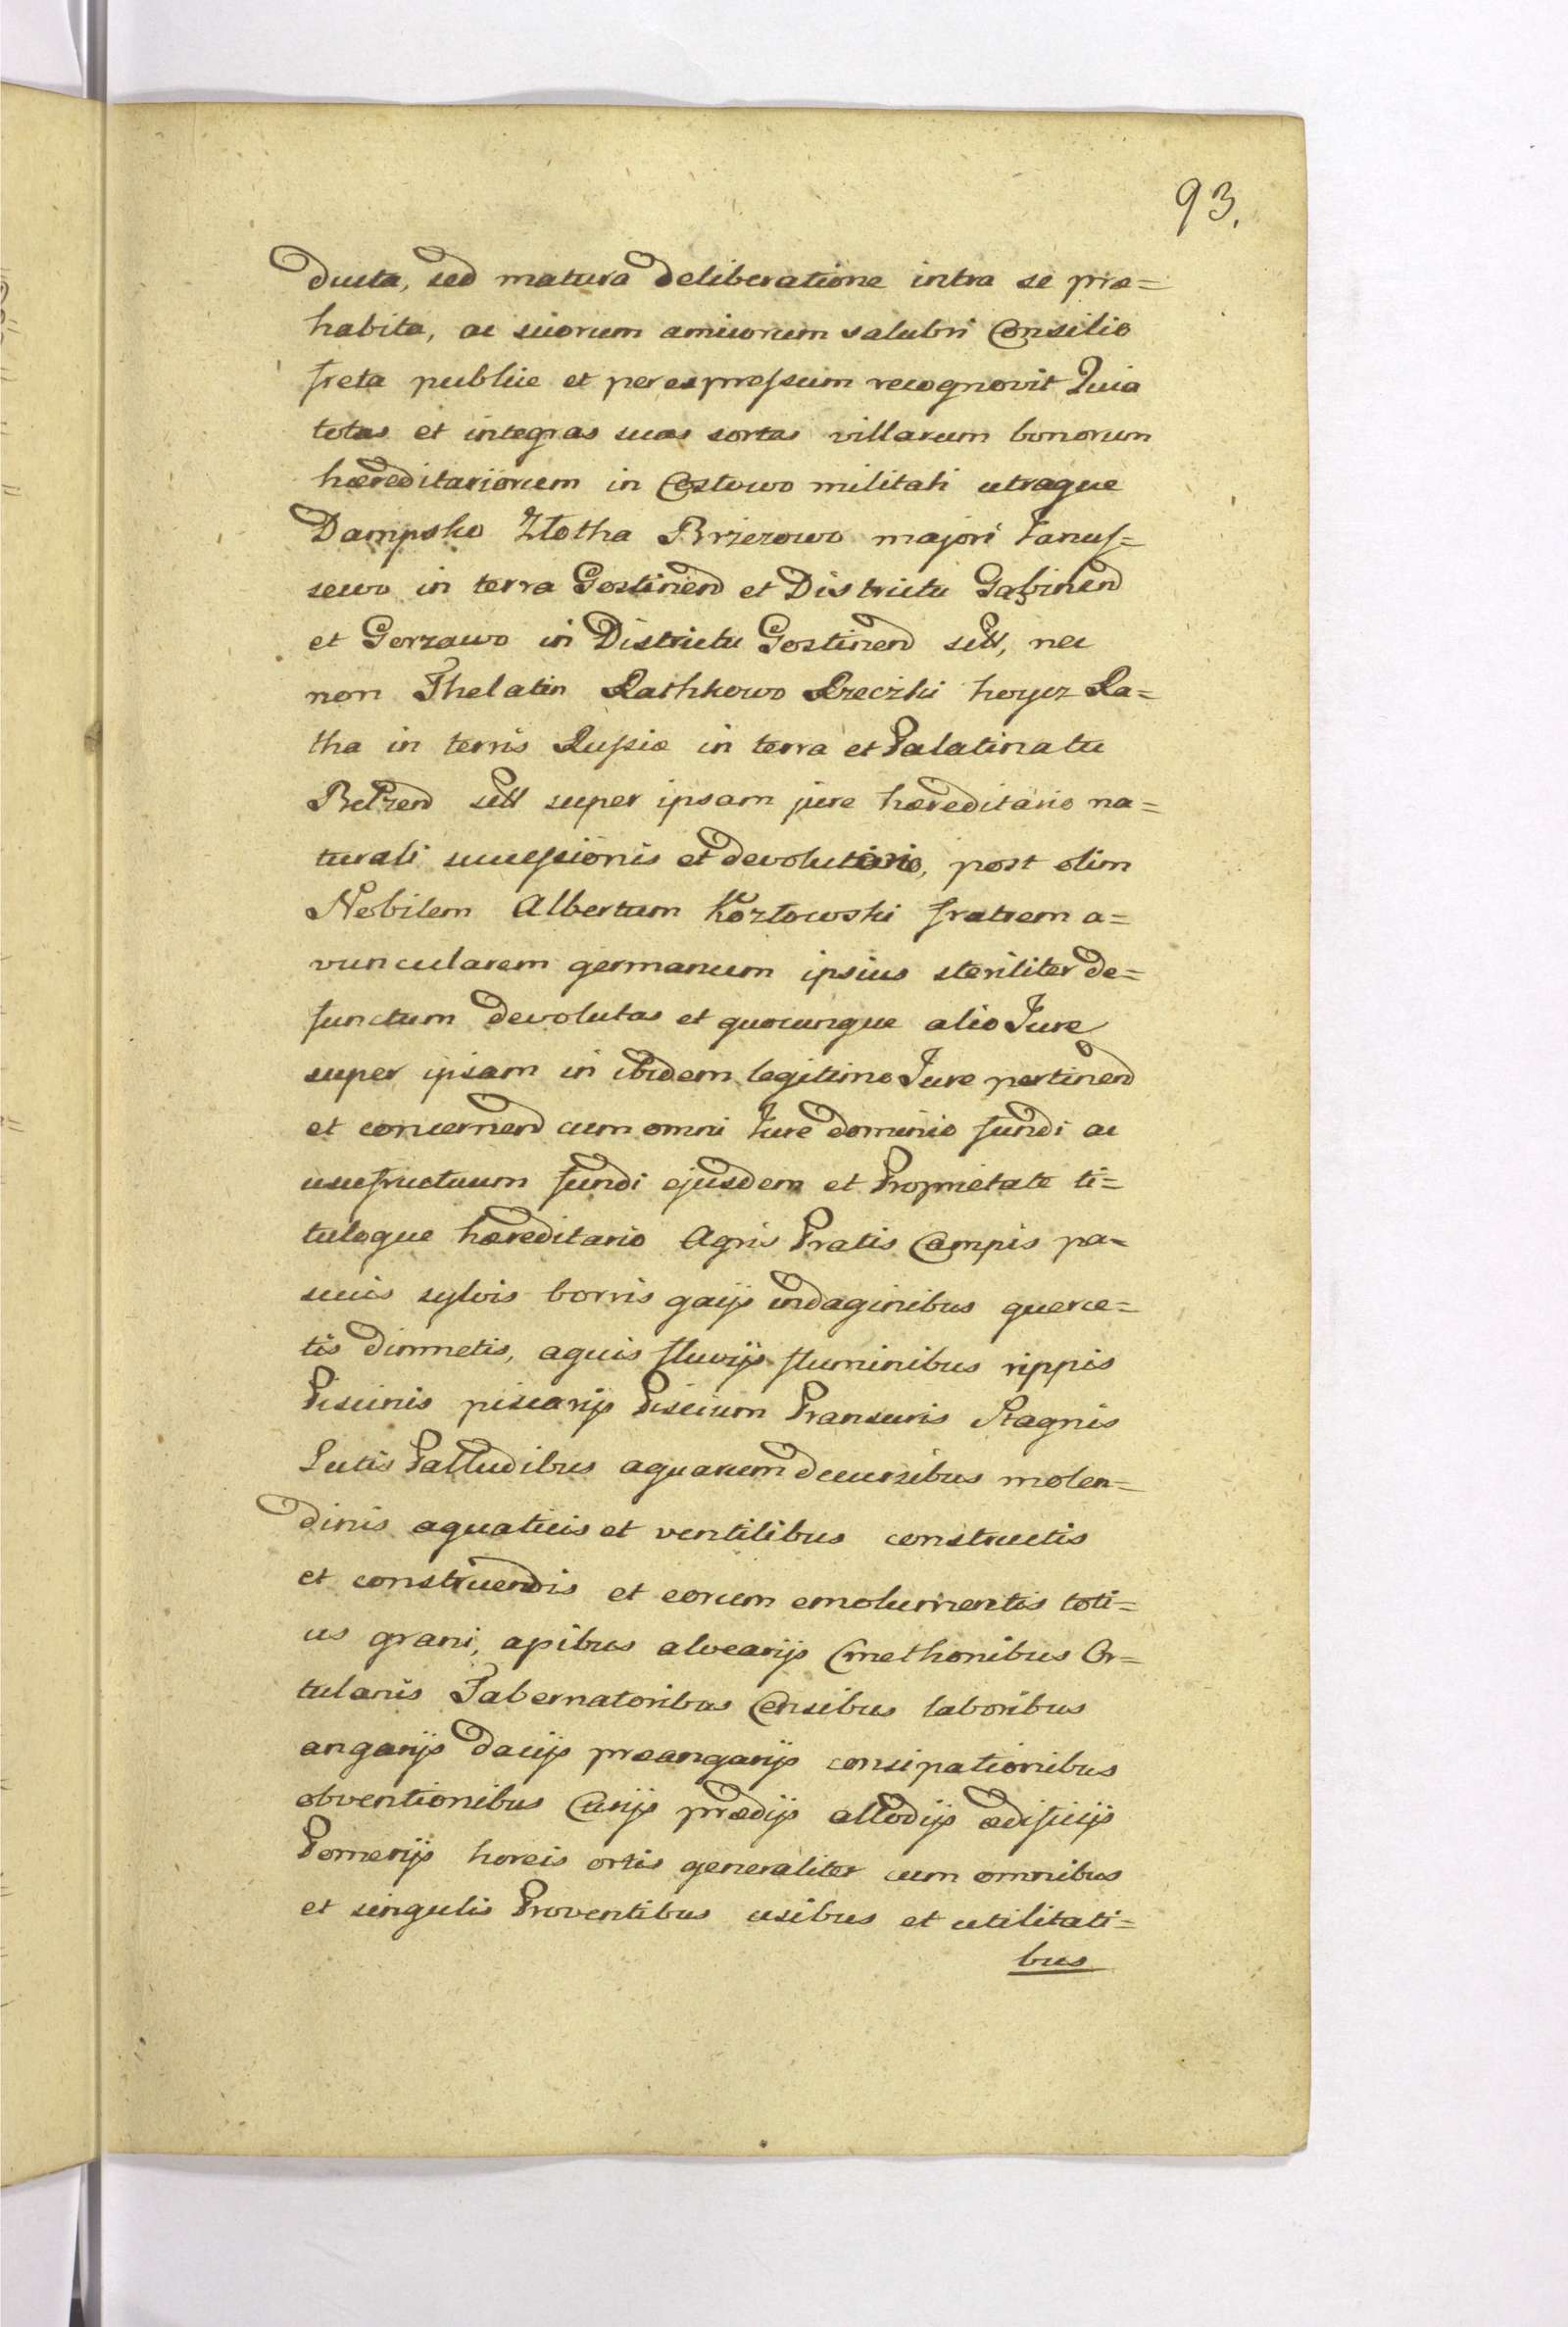 93.
ducta, sed matura deliberatione intra se præ=
habita, ac suorum amicorum salubri Consilio
freta publice et per expressum recognovit Quia
totas et integras suas sortas villarum bonorum
hæreditariorum in Costowo militali utraque
Dampsko Złotha Brzezowo majori Janus=
sewo in terra Gostinend et Districtu Gąbinend
et Gorzawo in Districtu Gostinend sitt, nec
non Thelatin Rathkowo Rzeczki hoycz Ra=
tha in terris Russiæ in terra et Palatinatu
Belzend sitt super ipsam jure hæreditario na=
turali successionis et devolutivo, post olim
Nobilem Albertum Kozłowski fratrem a=
vuncularem germanum ipsius steriliter de=
functum devolutas et quocunque alio Jure
super ipsam in ibidem legitimo Jure pertinend
et concernend cum omni Jure dominio fundi ac
usufructuum fundi ejusdem et Proprietate ti=
tuloque hæreditario Agris Pratis Campis pa=
scuis sylvis borris gaijs indaginibus querce=
tis dinmetis, aquis fluvijs fluminibus rippis
Piscinis piscarijs Piscium Pransuris Stagnis
Lutis Palludibus aquarum decursibus molen=
dinis aquaticis et ventilibus constructis
et construendis et eorum emolumentis toti=
us grani, apibus alvearijs Cmethonibus Or=
tulanis Tabernatoribus Censibus laboribus
angarijs dacijs præangarijs consipationibus
obventionibus Curijs prædijs allodijs ædificijs
Pomerijs horeis ortis generaliter cum omnibus
et singulis Proventibus usibus et utilitati=
bus